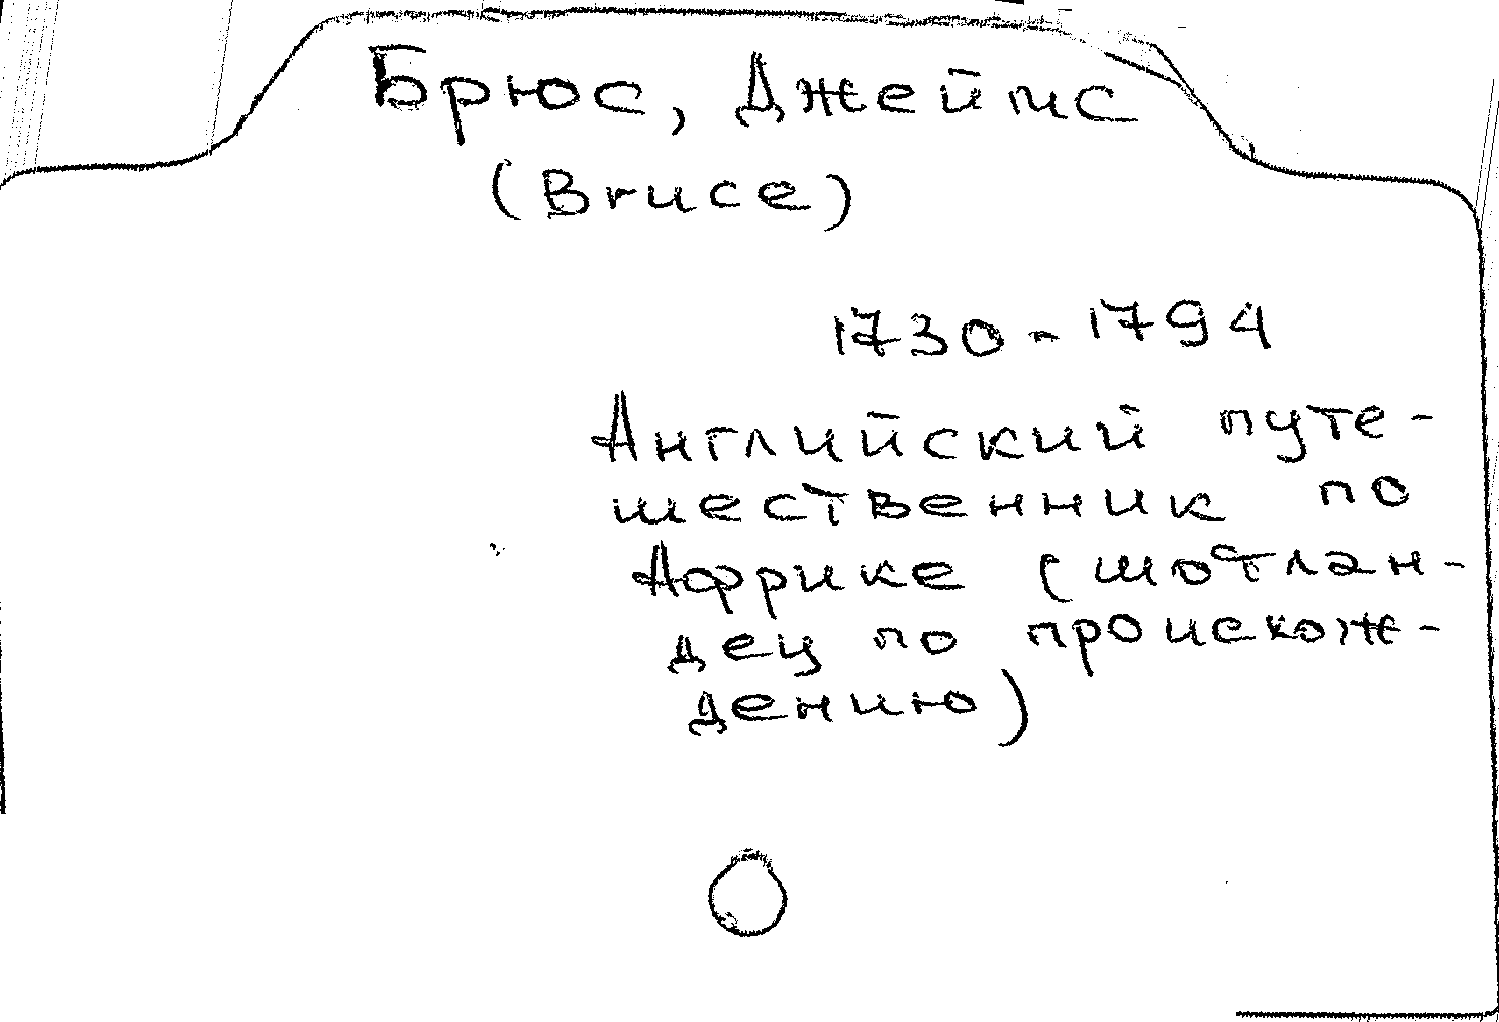 Брюс, Джеймс
(Bruce)
1730-1794
Английский путе-
шественник по
Африке (шотлан-
дец по происхож-
дению)